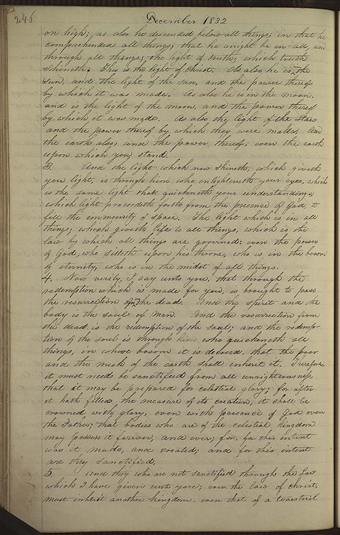 246 December 1832
on high; as also he descended below all things, in that he
comprehended all things; that he might be in all, and
through all things, the light of truth, which truth
shineth. This is the light of Christ. As also he is in the
sun, and the light of the sun, and the power thereof
by which it was made. As also he is in the moon,
and is the light of the moon, and the power thereof
by which it was made. As also the light of the stars
and the power thereof by which they were made. And
the earth also, and the power thereof; even the earth
upon which you stand.
3. And the light which now shineth, which giveth
you light, is through him who enlighteneth your eyes, which
is the same light that quickeneth your understandings;
which light proceedeth forth from the presence of God to
fill the immensity of space. The light which is in all
things; which giveth life to all things, which is the
law by which all things are governed; even the power
of God, who sitteth upon his throne, who is in the bosom
of eternity, who is in the midst of all things.
4. Now, verily, I say unto you, that through the
redemption which is made for you, is brought to pass
the resurrection from the dead. And the spirit and the
body is the soul of man. And the resurrection from
the dead, is the redemption of the soul; and the redemp-
tion of the soul is through him who quickeneth all
things, in whose bosom it is decreed, that the poor
and the meek of the earth shall inherit it. Therefore
it must needs be sanctified from all unrighteousness,
that it may be prepared for celestial glory; for after
it hath filled the measure of its creation, it shall be
crowned with glory, even with presence of God even
the Father; that bodies who are of the celestial kingdom
may possess it forever, and ever; for, for this intent
was it made, and created; and for this intent
are they sanctified.
5. And they who are not sanctified through the law
which I have given unto you; even the law of Christ,
must inherit another kingdom, even that of a terestrial